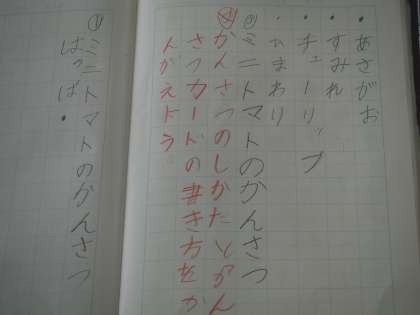 ・あさがお
・すみれ
・チューリップ
・ひまわり
ミニトマトのかんさつ
㋱かんさつのしかたとかん
さつカードの書き方をか
んがえよう
ミニトマトのかんさつ
はっぱ・